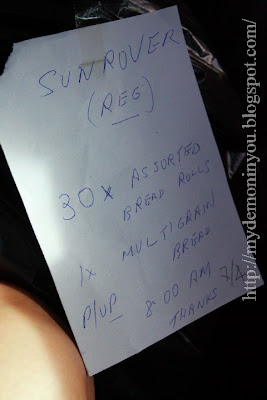 SUNROVER
(REG)
30x ASSORTED
BREAD ROLLS
1x MULTIGRAIN
BREAD
P/UP 8:00 AM
THANKS
http://mydemoninyou.blogspot.com/